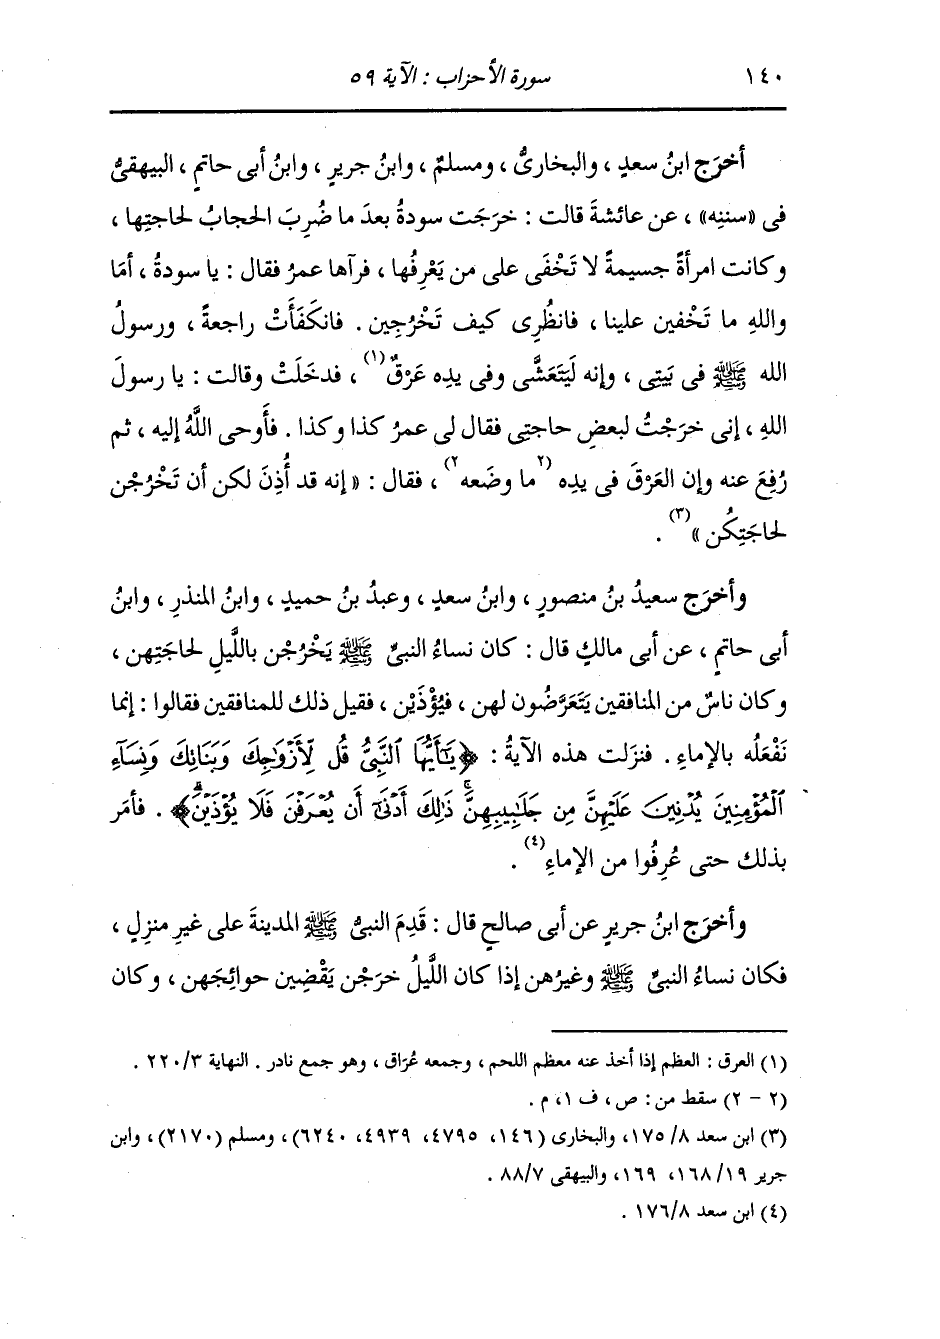 ١٤٠ سورة الأحزاب : الآية ٥٩
أخرَج ابنُ سعدٍ ، والبخارىُّ ، ومسلمٌ ، وابنُ جريرٍ ، وابنُ أبى حاتمٍ ، البيهقىُّ
فى «سننِه» ، عن عائشةَ قالت : خرَجَت سودةُ بعدَ ما ضُرِبَ الحجابُ لحاجتِها ،
وكانت امرأةً جسيمةً لا تَخْفَى على من يَعْرِفُها ، فرآها عمرُ فقال : يا سودةُ ، أمَا
واللهِ ما تَخْفين علينا ، فانظُرِى كيف تَخْرُجِين . فانكَفَأَتْ راجعةً ، ورسولُ
الله ﷺ فى بَيتِى ، وإنه لَيَتَعَشَّى وفى يدِه عَرْقٌ(١) ، فدخَلَتْ وقالت : يا رسولَ
اللهِ ، إنى خرَجْتُ لبعضِ حاجتِى فقال لى عمرُ كذا وكذا . فأَوحى اللَّهُ إليه ، ثم
رُفِعَ عنه وإن العَرْقَ فى يدِه (٢ ما وضَعه ٢) ، فقال : «إنه قد أُذِنَ لكن أن تَخْرُجْن
لحاجَتِكُن»(٣) .
وأخرَج سعيدُ بنُ منصورٍ ، وابنُ سعدٍ ، وعبدُ بنُ حميدٍ ، وابنُ المنذرِ ، وابنُ
أبى حاتمٍ ، عن أبى مالكٍ قال : كان نساءُ النبىِّ ﷺ يَخْرُجْن باللَّيلِ لحاجَتِهن ،
وكان ناسٌ من المنافقين يَتَعَرَّضُون لهن ، فيُؤْذَيْن ، فقيل ذلك للمنافقين فقالوا : إنما
نَفْعَلُه بالإماءِ . فنزَلت هذه الآيةُ : ﴿يَٰٓأَيُّهَا ٱلنَّبِىُّ قُل لِّأَزْوَٰجِكَ وَبَنَاتِكَ وَنِسَآءِ
ٱلْمُؤْمِنِينَ يُدْنِينَ عَلَيْهِنَّ مِن جَلَٰبِيبِهِنَّۚ ذَٰلِكَ أَدْنَىٰٓ أَن يُعْرَفْنَ فَلَا يُؤْذَيْنَۗ﴾ . فأمَر
بذلك حتى عُرِفُوا من الإماءِ(٤) .
وأخرَج ابنُ جريرٍ عن أبى صالحٍ قال : قَدِمَ النبىُّ ﷺ المدينةَ على غيرِ منزلٍ ،
فكان نساءُ النبىِّ ﷺ وغيرُهن إذا كان اللَّيلُ خرَجْن يَقْضِين حوائجَهن ، وكان
(١) العرق : العظم إذا أخذ عنه معظم اللحم ، وجمعه عُرَاق ، وهو جمع نادر . النهاية ٢٢٠/٣ .
(٢ - ٢) سقط من : ص ، ف ١ ، م .
(٣) ابن سعد ١٧٥/٨، والبخارى (١٤٦، ٤٧٩٥، ٤٩٣٩، ٦٢٤٠)، ومسلم (٢١٧٠)، وابن
جرير ١٦٨/١٩، ١٦٩، والبيهقى ٨٨/٧ .
(٤) ابن سعد ١٧٦/٨ .